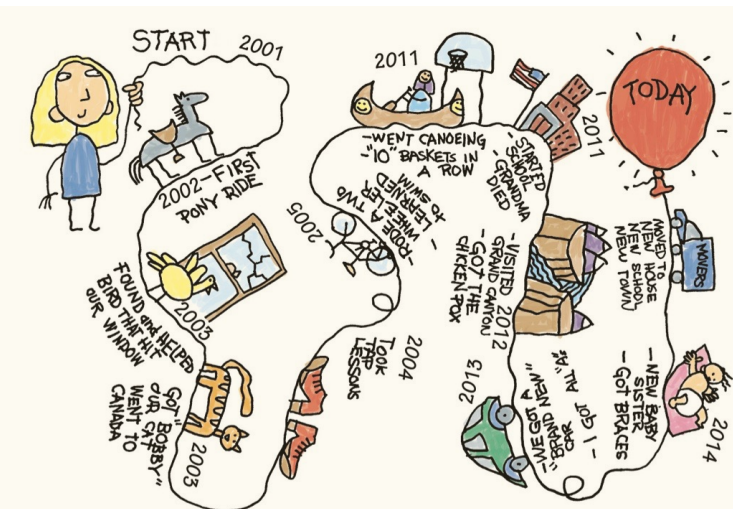 START
2001
2002-FIRST
PONY RIDE
2003
FOUND and HELPED
BIRD THAT HIT
OUR WINDOW
GOT "BOBBY"
OUR CAT
WENT TO
CANADA
2003
2004
TOOK
TAP
LESSONS
2005
-RODE A TWO
WHEELER
- LEARNED
to SWIM
2011
-WENT CANOEING
-"10" BASKETS IN
A ROW
2011
-STARTED
SCHOOL
- GRANDMA
DIED
2012
- VISITED
GRAND CANYON
- GOT THE
CHICKEN POX
2013
-WE GOT A
"BRAND NEW"
CAR
- I GOT ALL "A"s
2014
- NEW BABY
SISTER
- GOT BRACES
MOVERS
MOVED TO
NEW HOUSE
NEW SCHOOL
NEW TOWN
TODAY